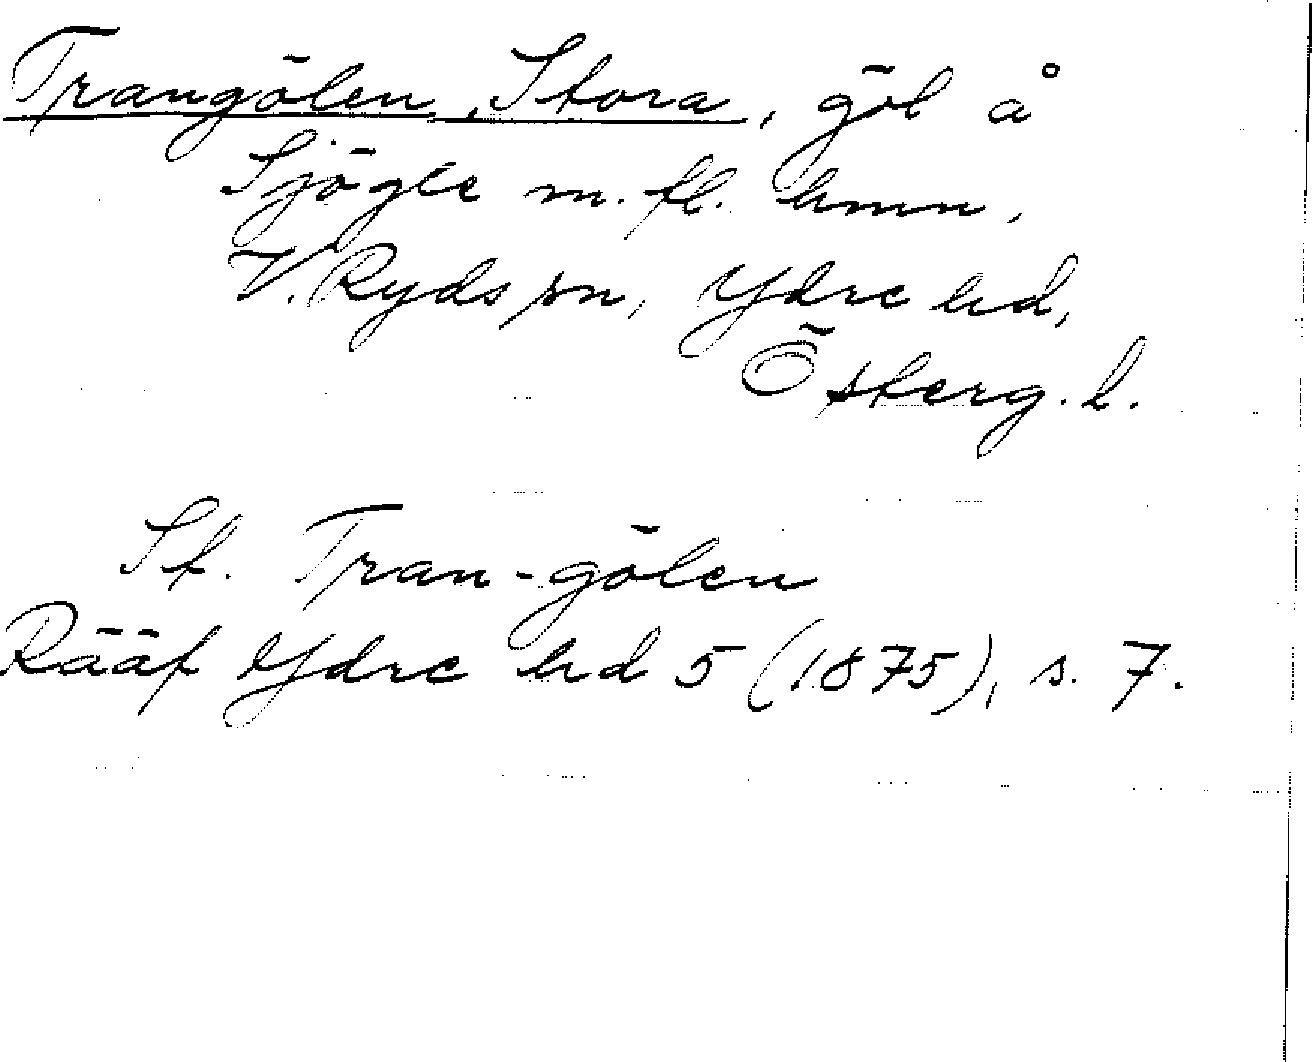 Trangölen, Stora, göl å
Sjögle m. fl. hmn,
V. Ryds sn, Ydre hd,
Österg. l.
St. Tran-gölen
Rääf Ydre hd 5 (1875), s. 7.